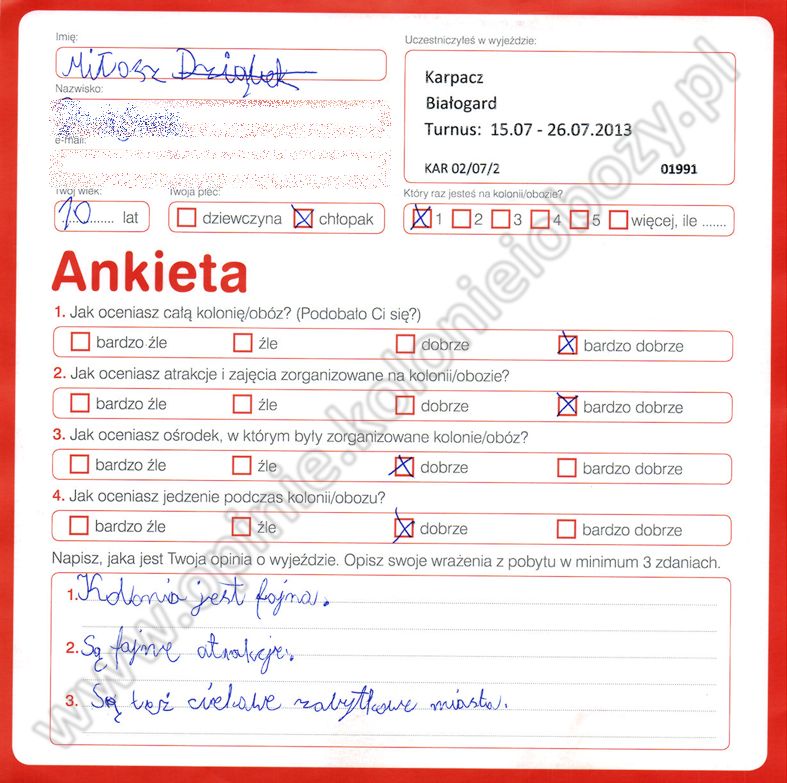 Imię:
Uczestniczyłeś w wyjeździe:
Miłosz
Karpacz
Białogard
Turnus: 15.07 - 26.07.2013
KAR 02/07/2 01991
Nazwisko:
e-mail:
Twój wiek:
Twoja płeć:
Który raz jesteś na kolonii/obozie?
10 lat
dziewczyna chłopak
1 2 3 4 5 więcej, ile .......
Ankieta
1. Jak oceniasz całą kolonię/obóz? (Podobało Ci się?)
bardzo źle źle dobrze bardzo dobrze
2. Jak oceniasz atrakcje i zajęcia zorganizowane na kolonii/obozie?
bardzo źle źle dobrze bardzo dobrze
3. Jak oceniasz ośrodek, w którym były zorganizowane kolonie/obóz?
bardzo źle źle dobrze bardzo dobrze
4. Jak oceniasz jedzenie podczas kolonii/obozu?
bardzo źle źle dobrze bardzo dobrze
Napisz, jaka jest Twoja opinia o wyjeździe. Opisz swoje wrażenia z pobytu w minimum 3 zdaniach.
1. Kolonia jest fajna.
2. Są fajne atrakcje.
3. Są też ciekawe zabytkowe miasta.
www.opinie.kolonieiobozy.pl